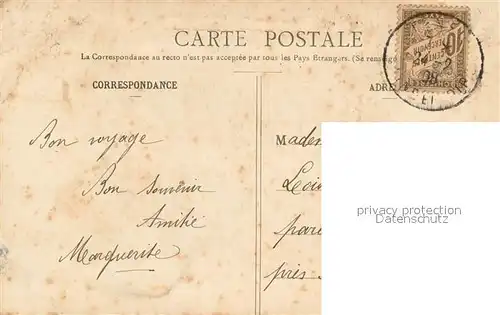 CARTE POSTALE
La Correspondance au recto n'est pas acceptée par tous les Pays Etrangers. (Se renseign
CORRESPONDANCE
ADRE
Bon voyage
Bon souvenir
Amitié
Marguerite
Mademo
près
privacy protection
Datenschutz